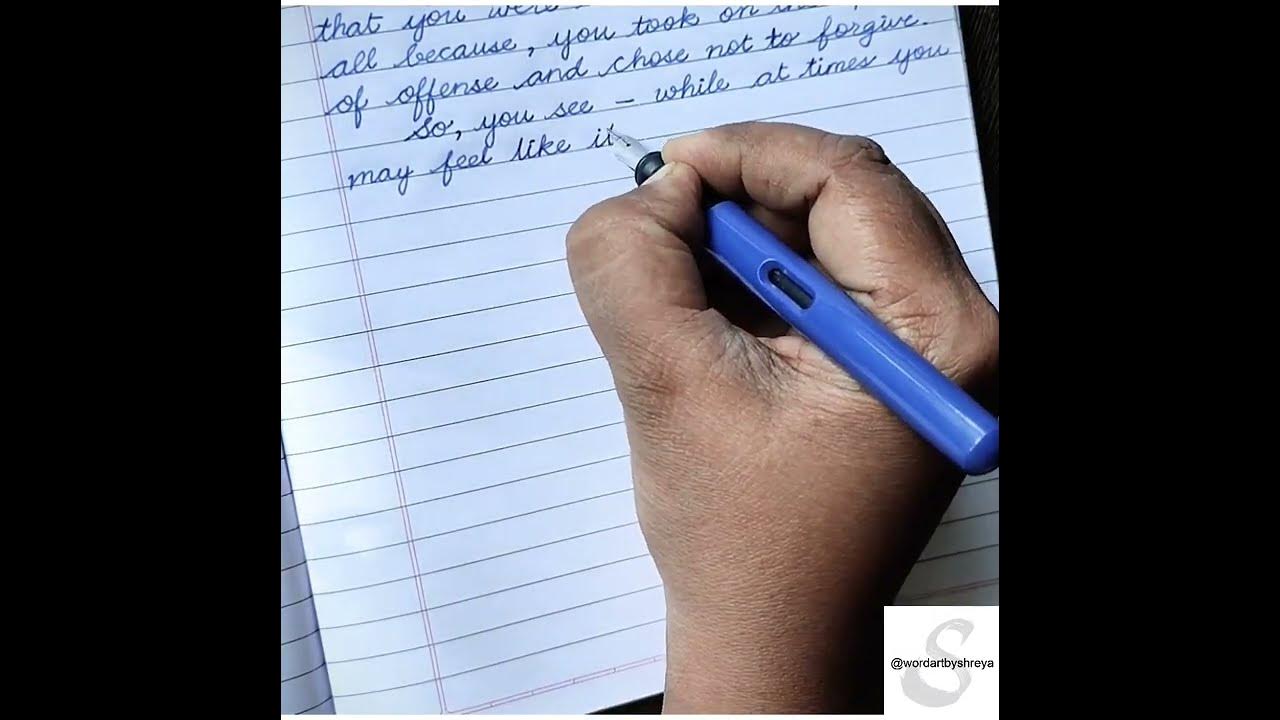 that you were
all because, you took on
of offense and chose not to forgive.
So, you see – while at times you
may feel like it
@wordartbyshreya